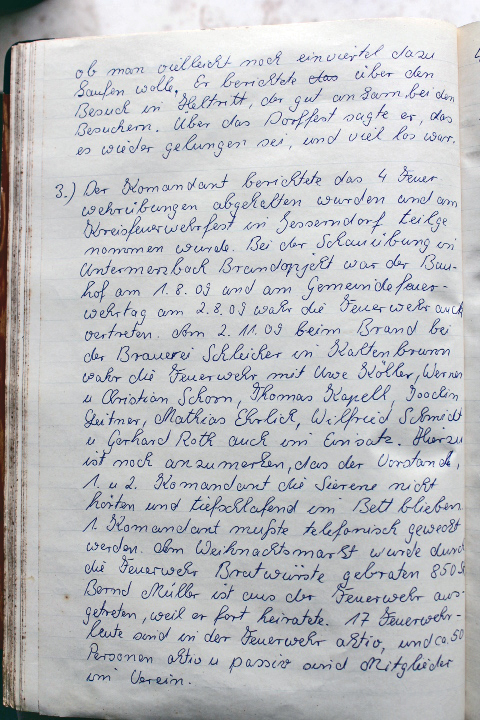 ob man vielleicht noch einviertel dazu
kaufen wolle. Er berichtete das über den
Besuch in Heltritt, der gut ankam bei den
Besuchern. Über das Dorffest sagte er, das
es wieder gelungen sei, und viel los war.
3.) Der Komandant berichtete das 4 Feuer
wehrübungen abgehalten wurden und am
Kreisfeuerwehrfest in Gesserndorf teilge
nommen wurde. Bei der Schauübung in
Untermerzbach Brandopjekt war der Bau-
hof am 1.8.09 und am Gemeindefeuer-
wehrtag am 2.8.09 wahr die Feuerwehr auch
vertreten. Am 2.11.09 beim Brand bei
der Brauerei Schleicher in Kaltenbrunn
wahr die Feuerwehr mit Uwe Köhler, Werner
u Christian Schorn, Thomas Kapell, Joachim
Leitner, Mathias Ehrlich, Wilfried Schmidt
u Gerhard Roth auch im Einsatz. Hierzu
ist noch anzumerken, das der Vorstande,
1. u 2. Komandant die Sierene nicht
hörten und tiefschlafend im Bett blieben.
1. Komandant mußte telefonisch geweckt
werden. Am Weihnachtsmarkt wurde durch
die Feuerwehr Bratwürste gebraten 850 St
Bernd Müller ist aus der Feuerwehr aus-
getreten, weil er fort heiratete. 17 Feuerwehr-
leute sind in der Feuerwehr aktiv, und ca. 50
Personen aktiv u passiv sind Mitglieder
im Verein.